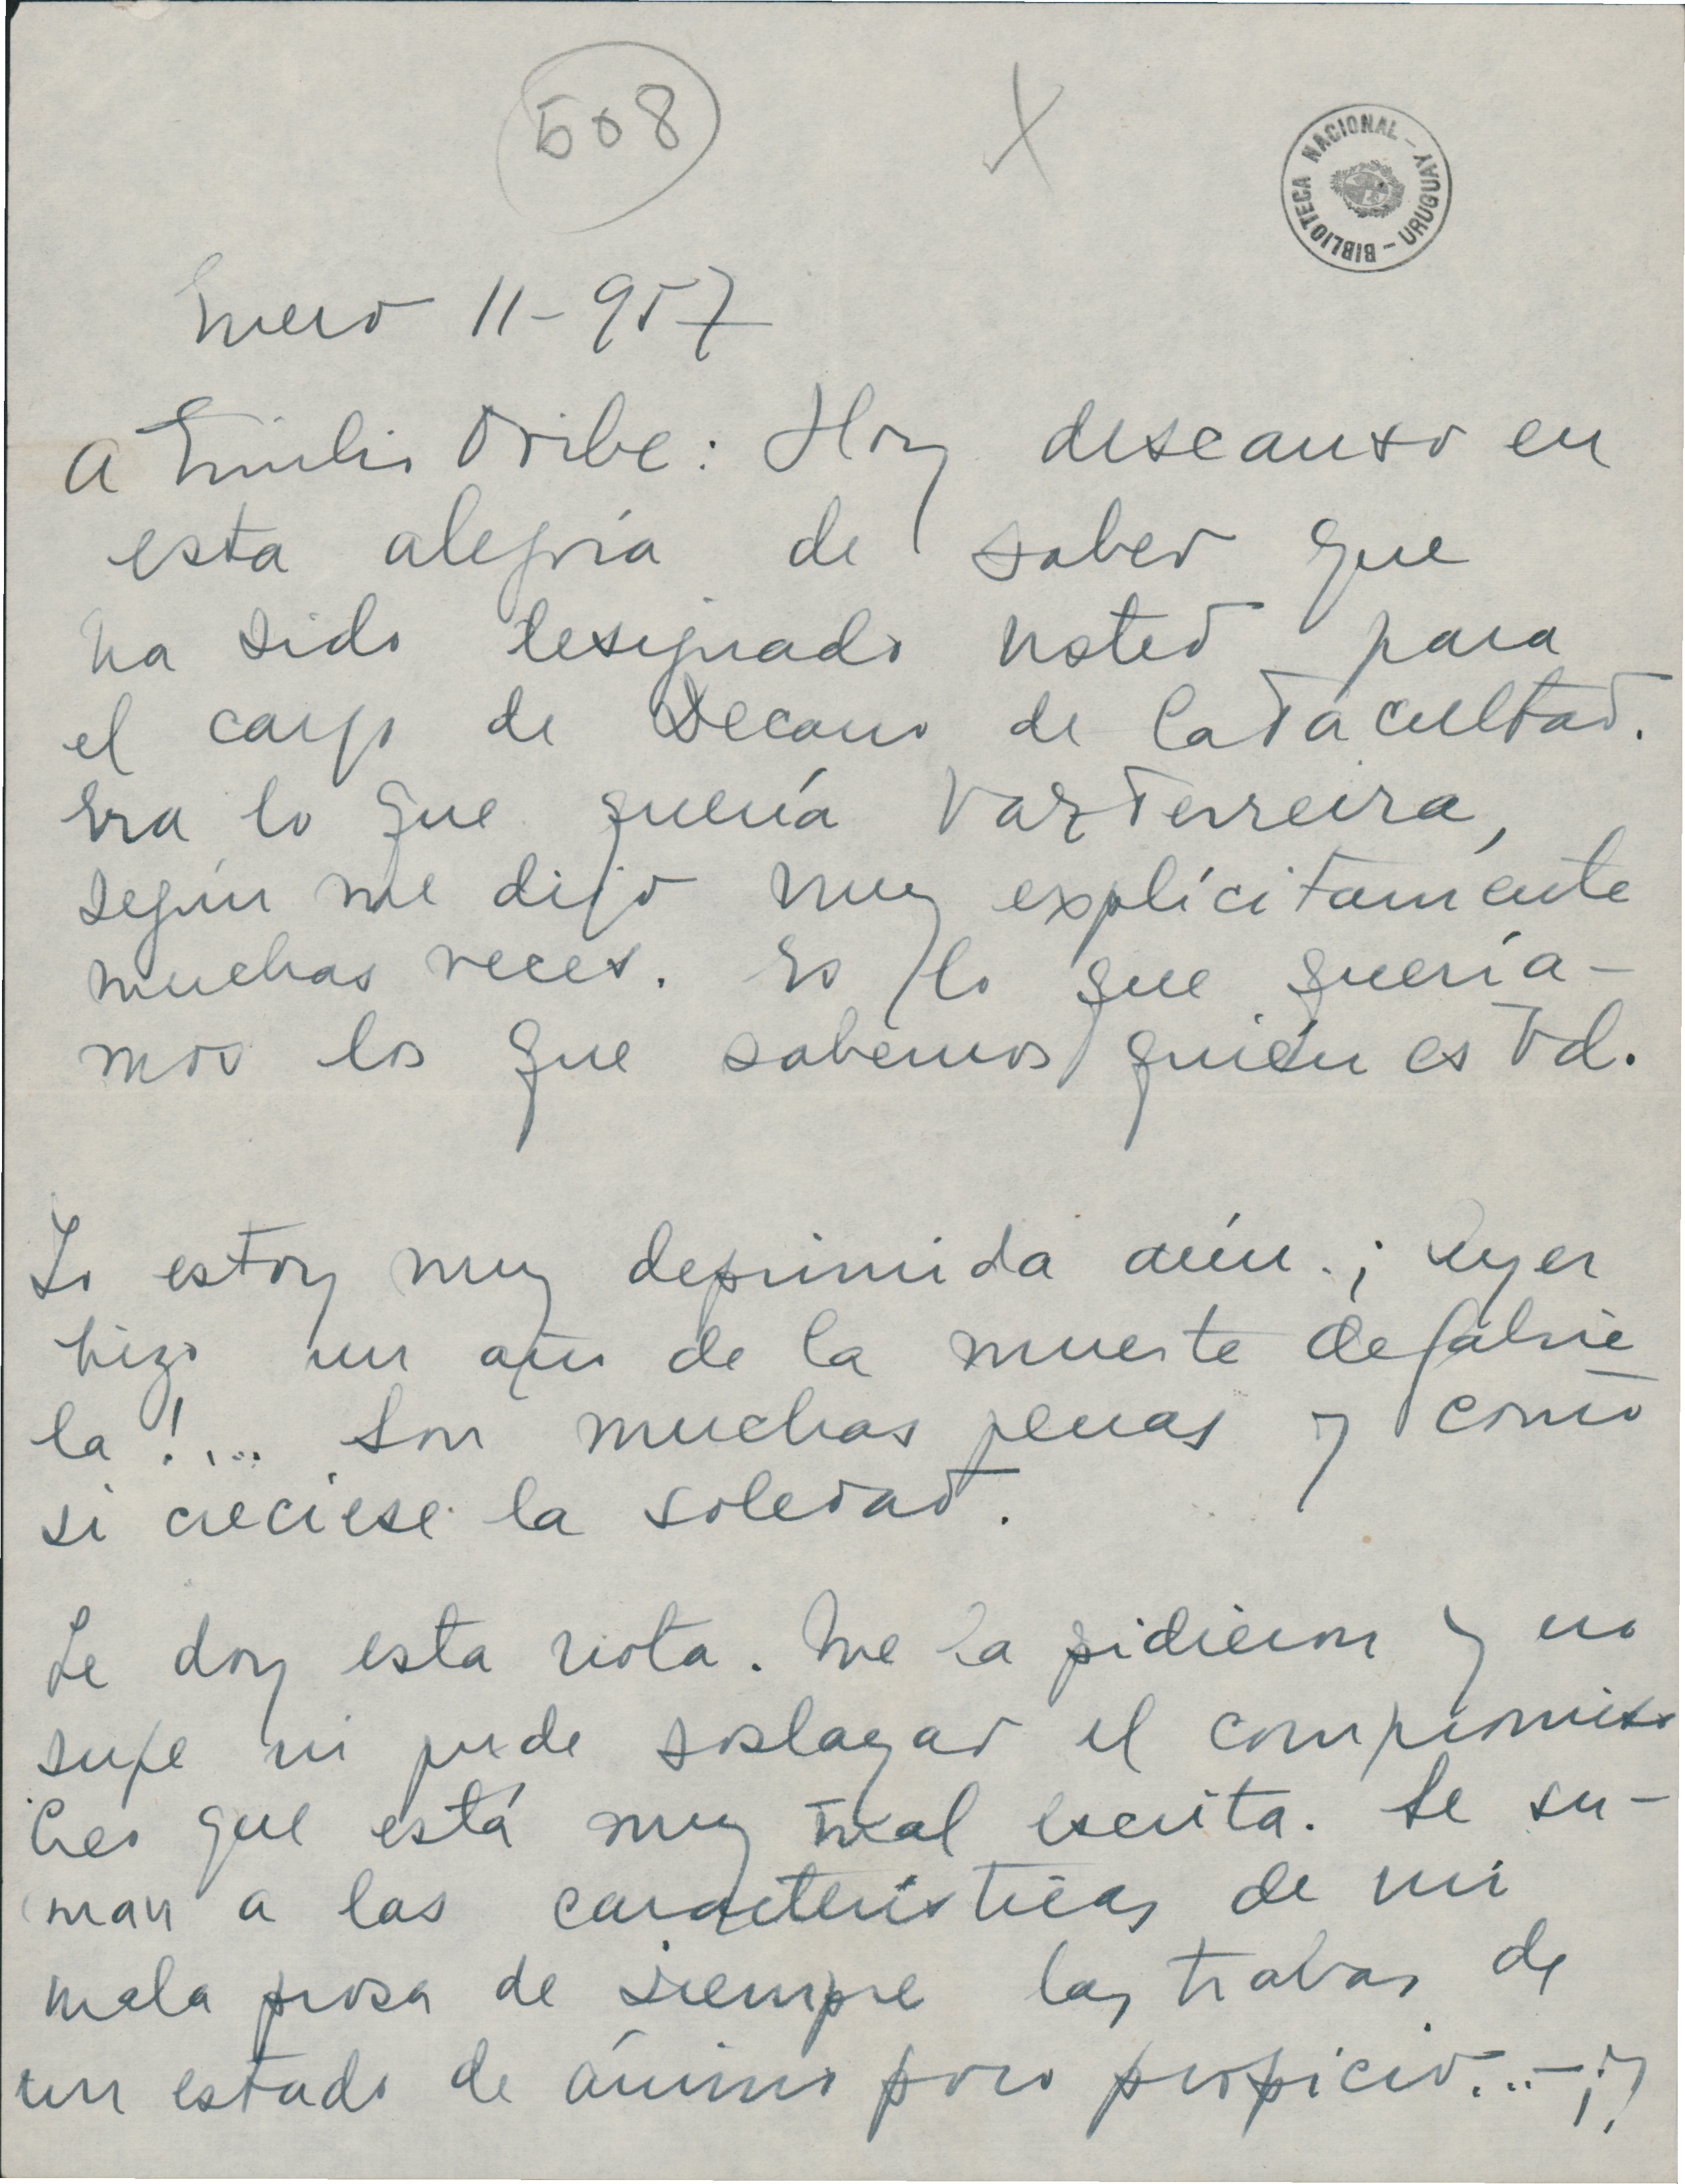 508
X
BIBLIOTECA NACIONAL - URUGUAY -
Enero 11-957
A Emilio Oribe: Hoy descanso en
esta alegría de saber que
ha sido designado usted para
el cargo de Decano de la Facultad.
Era lo que quería Vaz Ferreira,
según me dijo muy explícitamente
muchas veces. Es lo que quería-
mos los que sabemos quién es Vd.
Yo estoy muy deprimida aún. ¡Ayer
hizo un año de la muerte de Gabrie
la!... Son muchas penas y como
si creciese la soledad.
Le doy esta nota. Me la pidieron y no
supe ni pude soslayar el compromiso
Creo que está muy mal escrita. Se su-
man a las características de mi
mala prosa de siempre las trabas de
un estado de ánimo poco propicio...-¡y